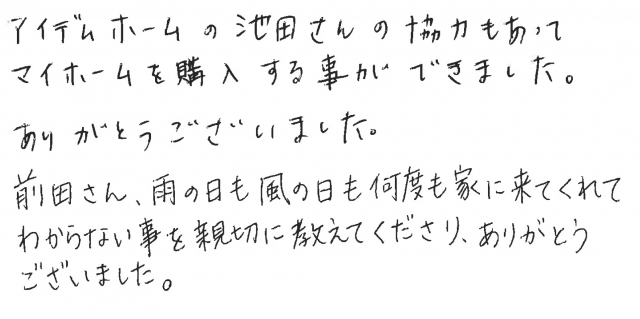 アイデムホームの池田さんの協力もあって
マイホームを購入する事ができました。
ありがとうございました。
前田さん、雨の日も風の日も何度も家に来てくれて
わからない事を親切に教えてくださり、ありがとう
ございました。